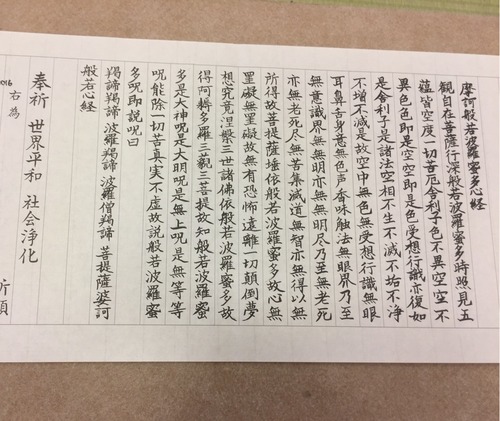 摩訶般若波羅蜜多心経
觀自在菩薩行深般若波羅蜜多時照見五
蘊皆空度一切苦厄舎利子色不異空空不
異色色即是空空即是色受想行識亦復如
是舎利子是諸法空相不生不滅不垢不浄
不増不減是故空中無色無受想行識無眼
耳鼻舌身意無色声香味触法無眼界乃至
無意識界無無明亦無無明尽乃至無老死
亦無老死尽無苦集滅道無智亦無得以無
所得故菩提薩埵依般若波羅蜜多故心無
罣礙無罣礙故無有恐怖遠離一切顛倒夢
想究竟涅槃三世諸佛依般若波羅蜜多故
得阿耨多羅三藐三菩提故知般若波羅蜜
多是大神呪是大明呪是無上呪是無等等
呪能除一切苦真実不虚故説般若波羅蜜
多呪即説呪曰
羯諦羯諦 波羅羯諦 波羅僧羯諦 菩提薩婆訶
般若心経
奉祈 世界平和 社会浄化
右為
祈願